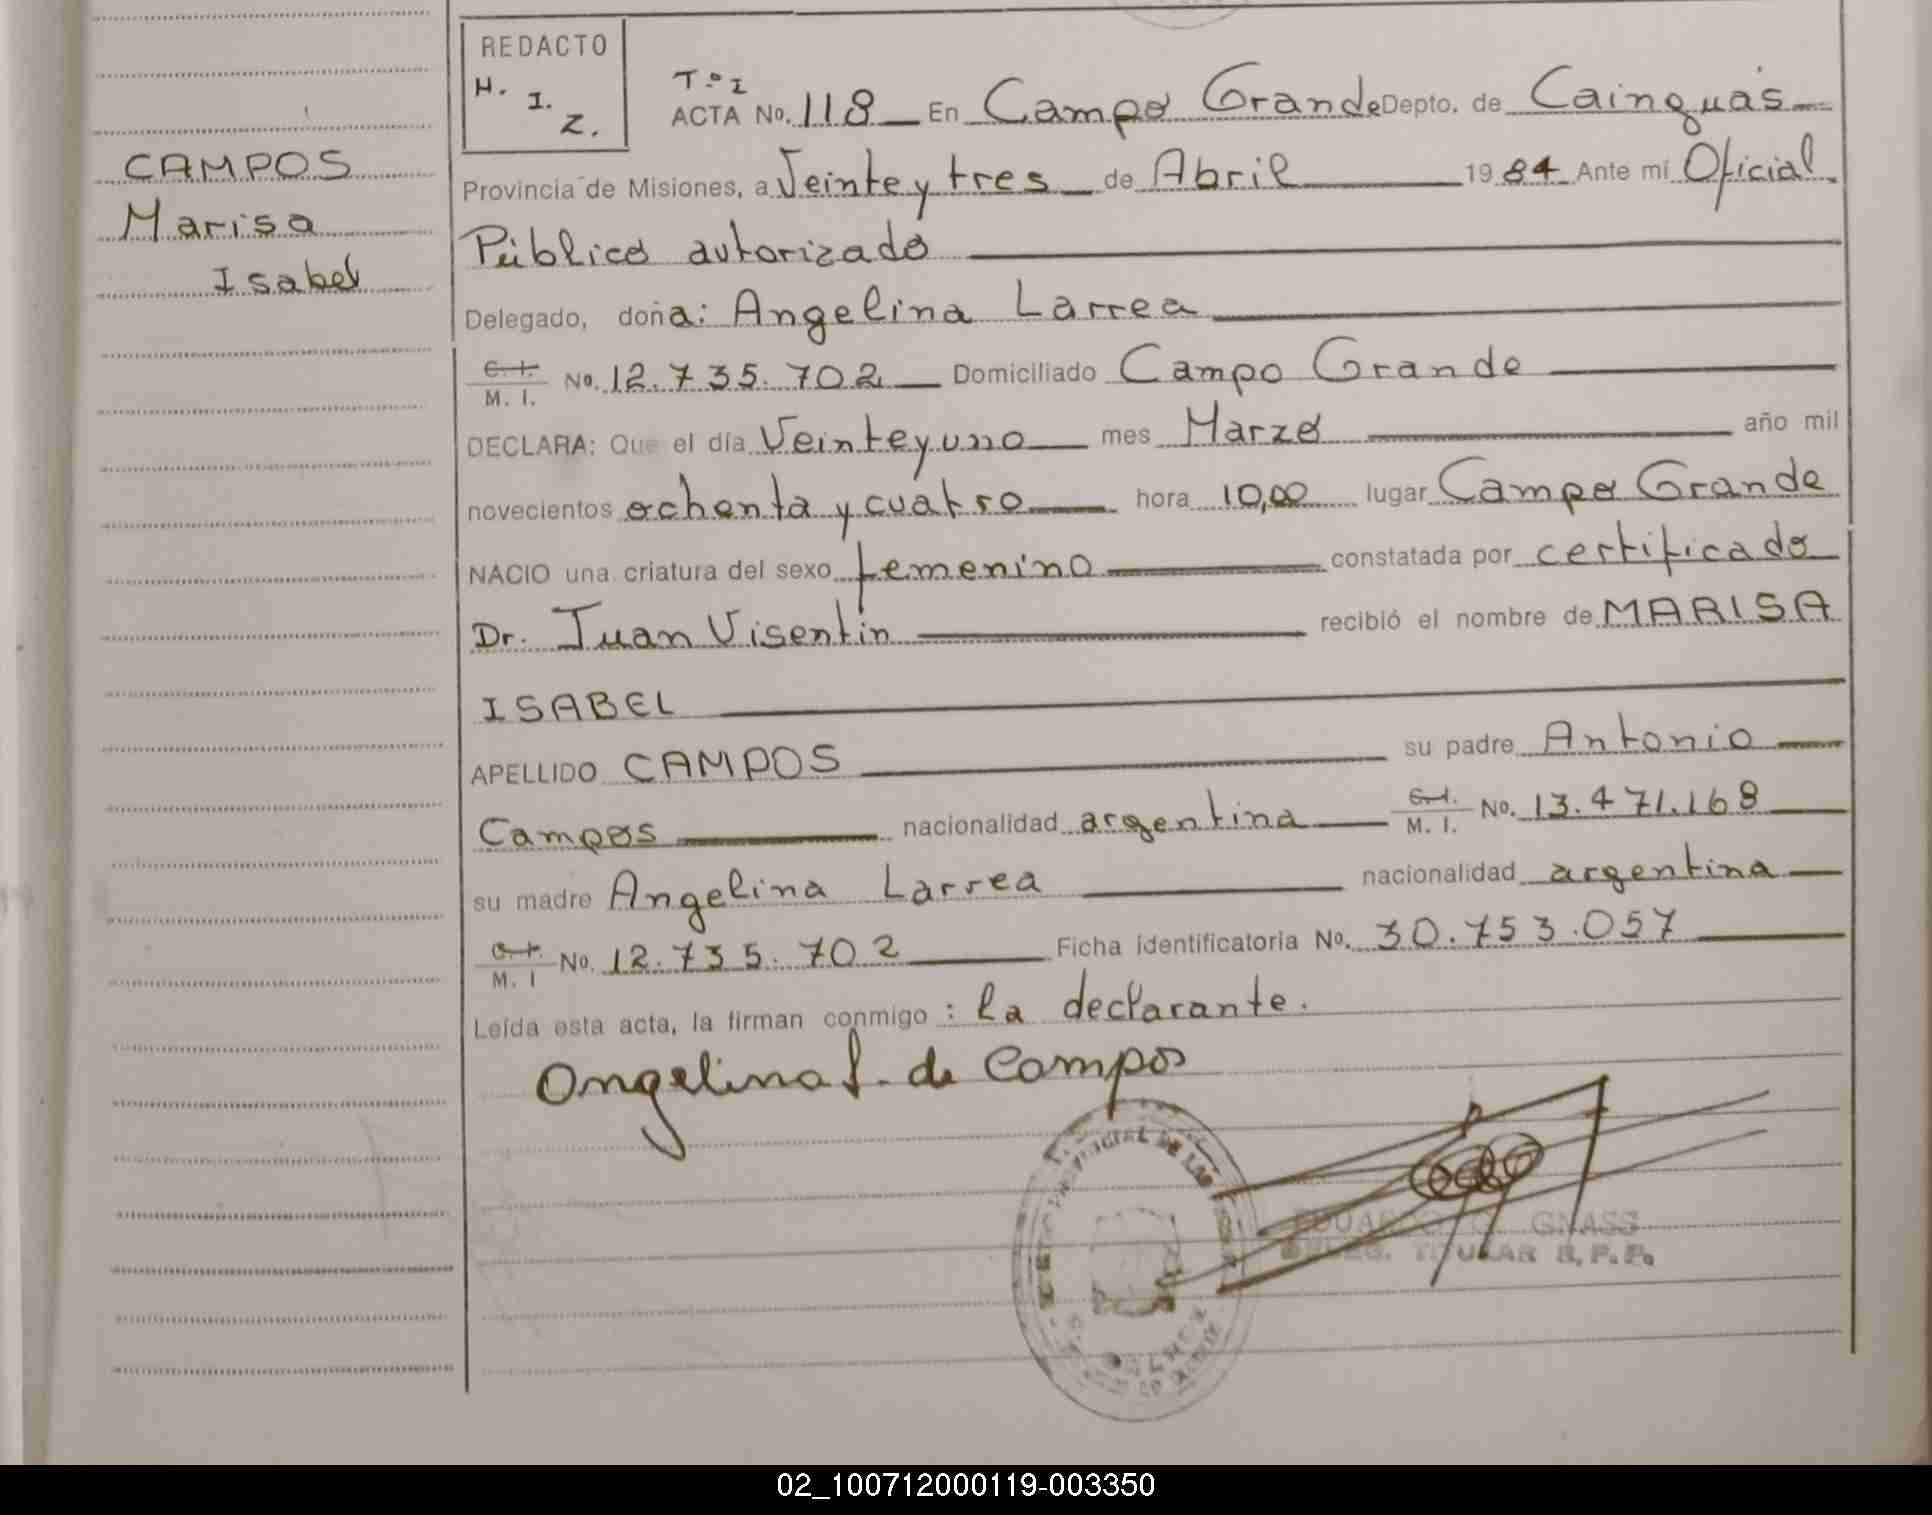 REDACTO
H. I. Z.
CAMPOS
Marisa
Isabel
T.º I
ACTA No. 118 En Campo Grande Depto. de Cainguás
Provincia de Misiones, a Veinte y tres de Abril 1984 Ante mí Oficial
Público autorizado
Delegado, doña: Angelina Larrea
C. I. M. I. No. 12.735.702 Domiciliado Campo Grande
DECLARA: Que el día Veinte y uno mes Marzo año mil
novecientos ochenta y cuatro hora 10,00 lugar Campo Grande
NACIO una criatura del sexo femenino constatada por certificado
Dr. Juan Visentin recibió el nombre de MARISA
ISABEL
APELLIDO CAMPOS su padre Antonio
Campos nacionalidad argentina C. I. M. I. No. 13.471.168
su madre Angelina Larrea nacionalidad argentina
C. I. M. I No. 12.735.702 Ficha identificatoria No. 30.753.057
Leída esta acta, la firman conmigo : la declarante.
Angelina L. de Campos
PROVINCIAL DE LAS
EDUARDO GNASS
DELEG. TITULAR R.P.P.
02_100712000119-003350